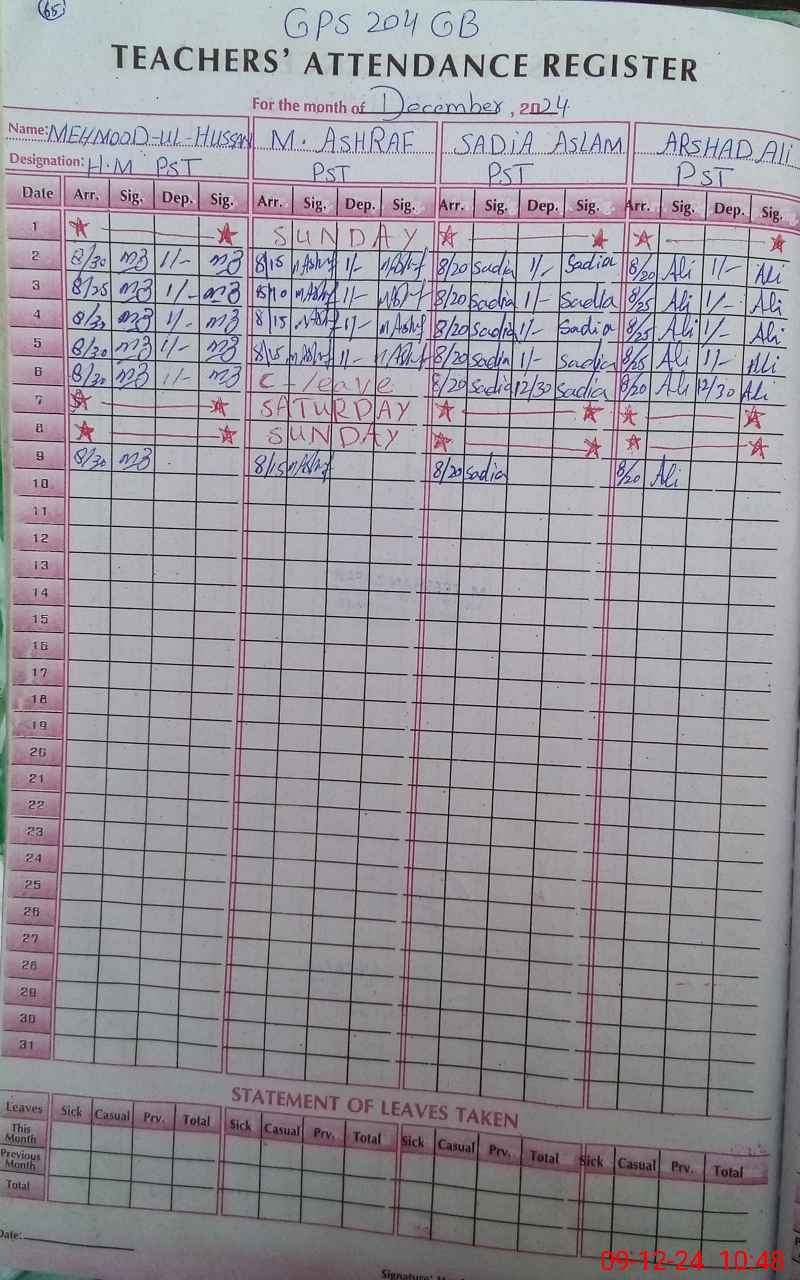 65
GPS 204 GB
TEACHERS' ATTENDANCE REGISTER
For the month of December, 2024
Name: MEHMOOD-UL-HUSSAN M. ASHRAF SADIA ASLAM ARSHAD Ali
Designation: H.M PST PST PST PST
Date Arr. Sig. Dep. Sig. Arr. Sig. Dep. Sig. Arr. Sig. Dep. Sig. Arr. Sig. Dep. Sig.
1 SUNDAY
2 8/30 1/- 8/15 1/- 8/20 Sadia 1/- Sadia 8/20 Ali 1/- Ali
3 8/25 1/- 8/10 1/- 8/20 Sadia 1/- Sadia 8/25 Ali 1/- Ali
4 8/30 1/- 8/15 1/- 8/20 Sadia 1/- Sadia 8/25 Ali 1/- Ali
5 8/30 1/- 8/15 1/- 8/20 Sadia 1/- Sadia 8/25 Ali 1/- Ali
6 8/30 1/- C-leave 8/20 Sadia 12/30 Sadia 8/20 Ali 12/30 Ali
7 SATURDAY
8 SUNDAY
9 8/30 8/15 8/20 Sadia 8/20 Ali
10
11
12
13
14
15
16
17
18
19
20
21
22
23
24
25
26
27
28
29
30
31
STATEMENT OF LEAVES TAKEN
Leaves Sick Casual Prv. Total Sick Casual Prv. Total Sick Casual Prv. Total Sick Casual Prv. Total
This Month
Previous Month
Total
Date:
Signature:
09-12-24 10:48